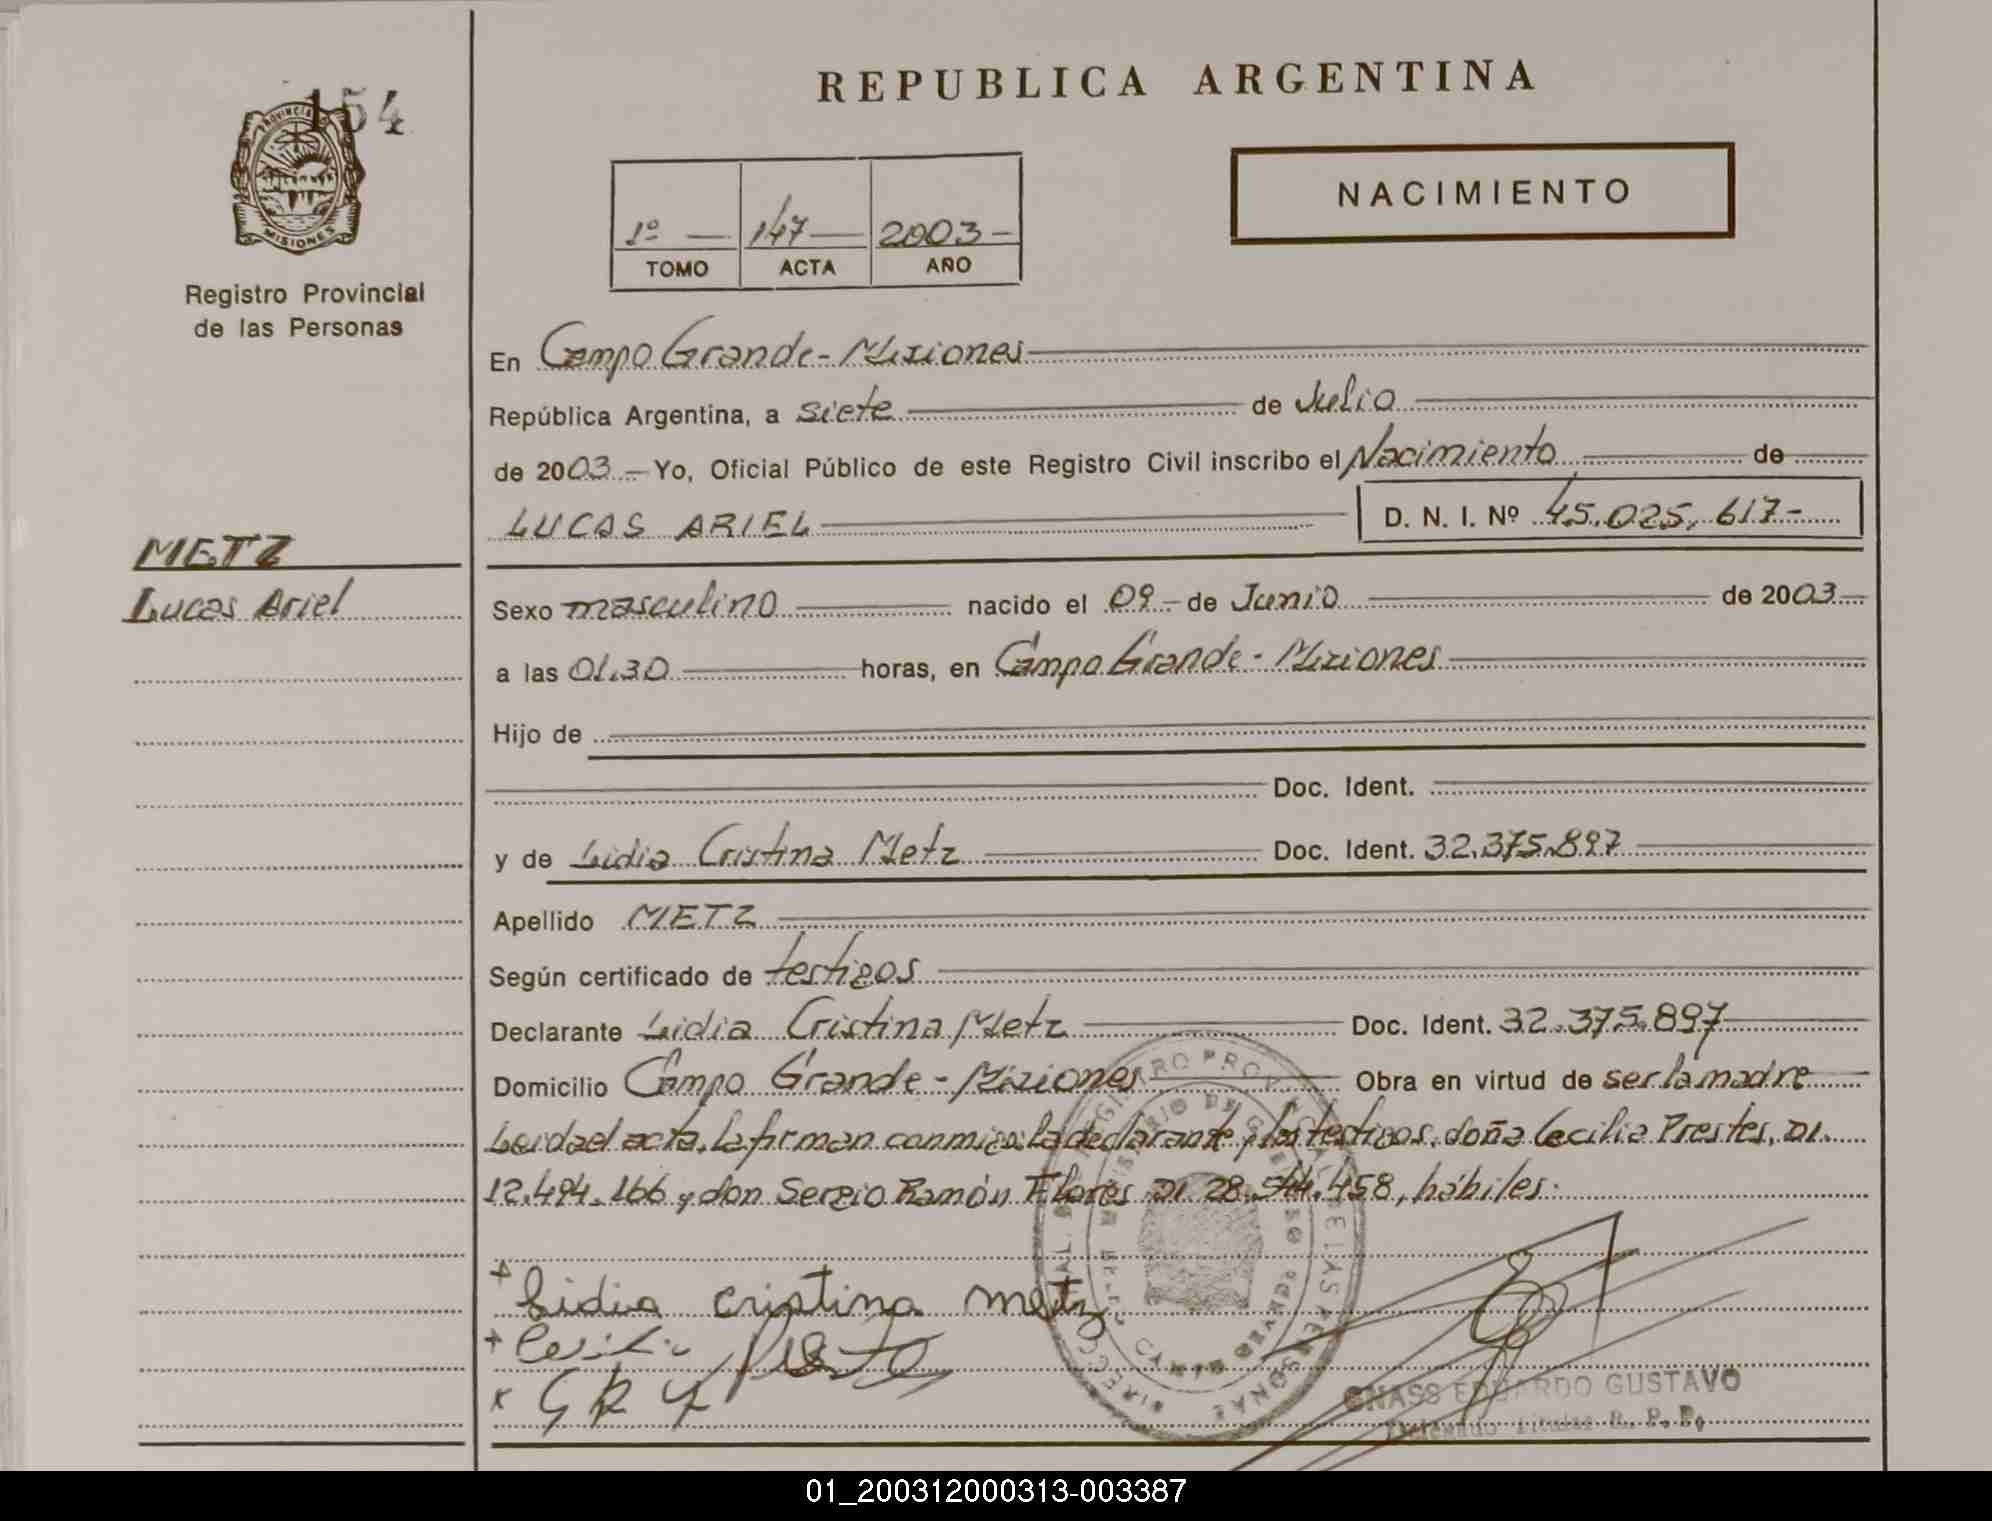 154
PROVINCIA
MISIONES
Registro Provincial
de las Personas
METZ
Lucas Ariel
REPUBLICA ARGENTINA
NACIMIENTO
1º 147 2003-
TOMO ACTA AÑO
En Campo Grande - Misiones
República Argentina, a siete de Julio
de 2003 - Yo, Oficial Público de este Registro Civil inscribo el Nacimiento de
LUCAS ARIEL D. N. I. Nº 45.025.617-
Sexo masculino nacido el 09 - de Junio de 2003
a las 01.30 horas, en Campo Grande - Misiones
Hijo de
Doc. Ident.
y de Lidia Cristina Metz Doc. Ident. 32.375.897
Apellido METZ
Según certificado de testigos
Declarante Lidia Cristina Metz Doc. Ident. 32.375.897
Domicilio Campo Grande - Misiones Obra en virtud de ser la madre
Leída el acta, la firman conmigo: la declarante y los testigos, doña Cecilia Prestes, DI.
12.494.166 y don Sergio Ramón Flores DI 28.544.458, hábiles.
+ Lidia cristina metz
+
x
GNASS EDUARDO GUSTAVO
R. P. P.
01_200312000313-003387